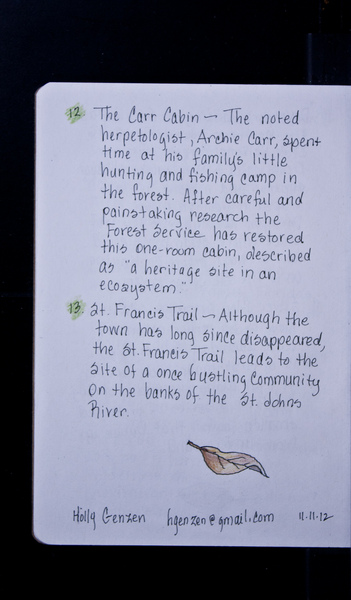 12. The Carr Cabin — The noted
herpetologist, Archie Carr, spent
time at his family's little
hunting and fishing camp in
the forest. After careful and
painstaking research the
Forest Service has restored
this one-room cabin, described
as "a heritage site in an
ecosystem."
13. St. Francis Trail — Although the
town has long since disappeared,
the St. Francis Trail leads to the
site of a once bustling community
on the banks of the St. Johns
River.
Holly Genzen hgenzen@gmail.com 11.11.12